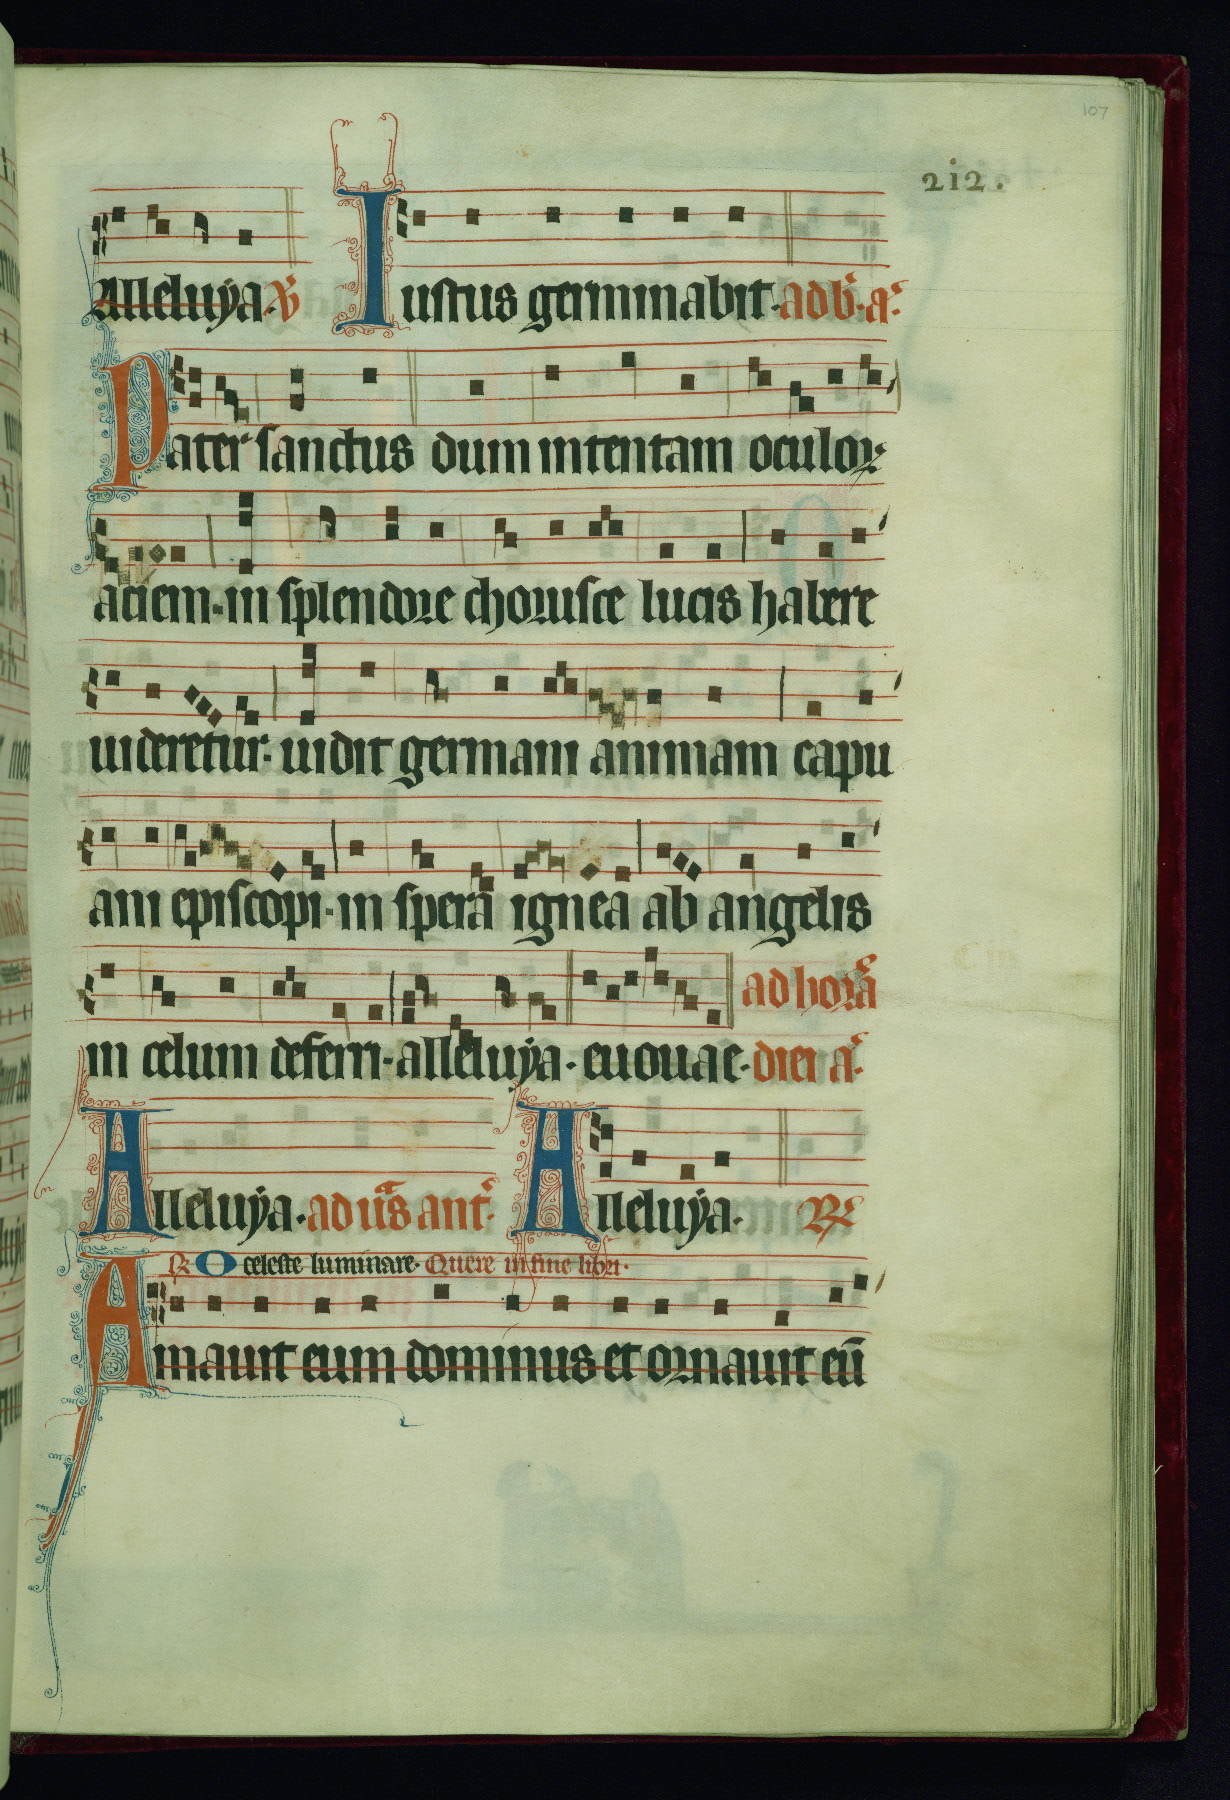 107
212.
Alleluya. V̄ Iustus germinabit. ad b̄. a᷒
Pater sanctus dum intentam oculoꝝ
aciem. in splendore choruste lucis habere
uideretur. uidit germani animam capu
ani episcopi. in spera ignea ab angelis
ad horā
in celum deferri. alleluya. euouae. diei a᷒
Alleluya. ad uās ant᷒ Alleluya. ℟
℟ O celeste luminare. Quere in fine libri.
Amauit eum dominus et ornauit eū